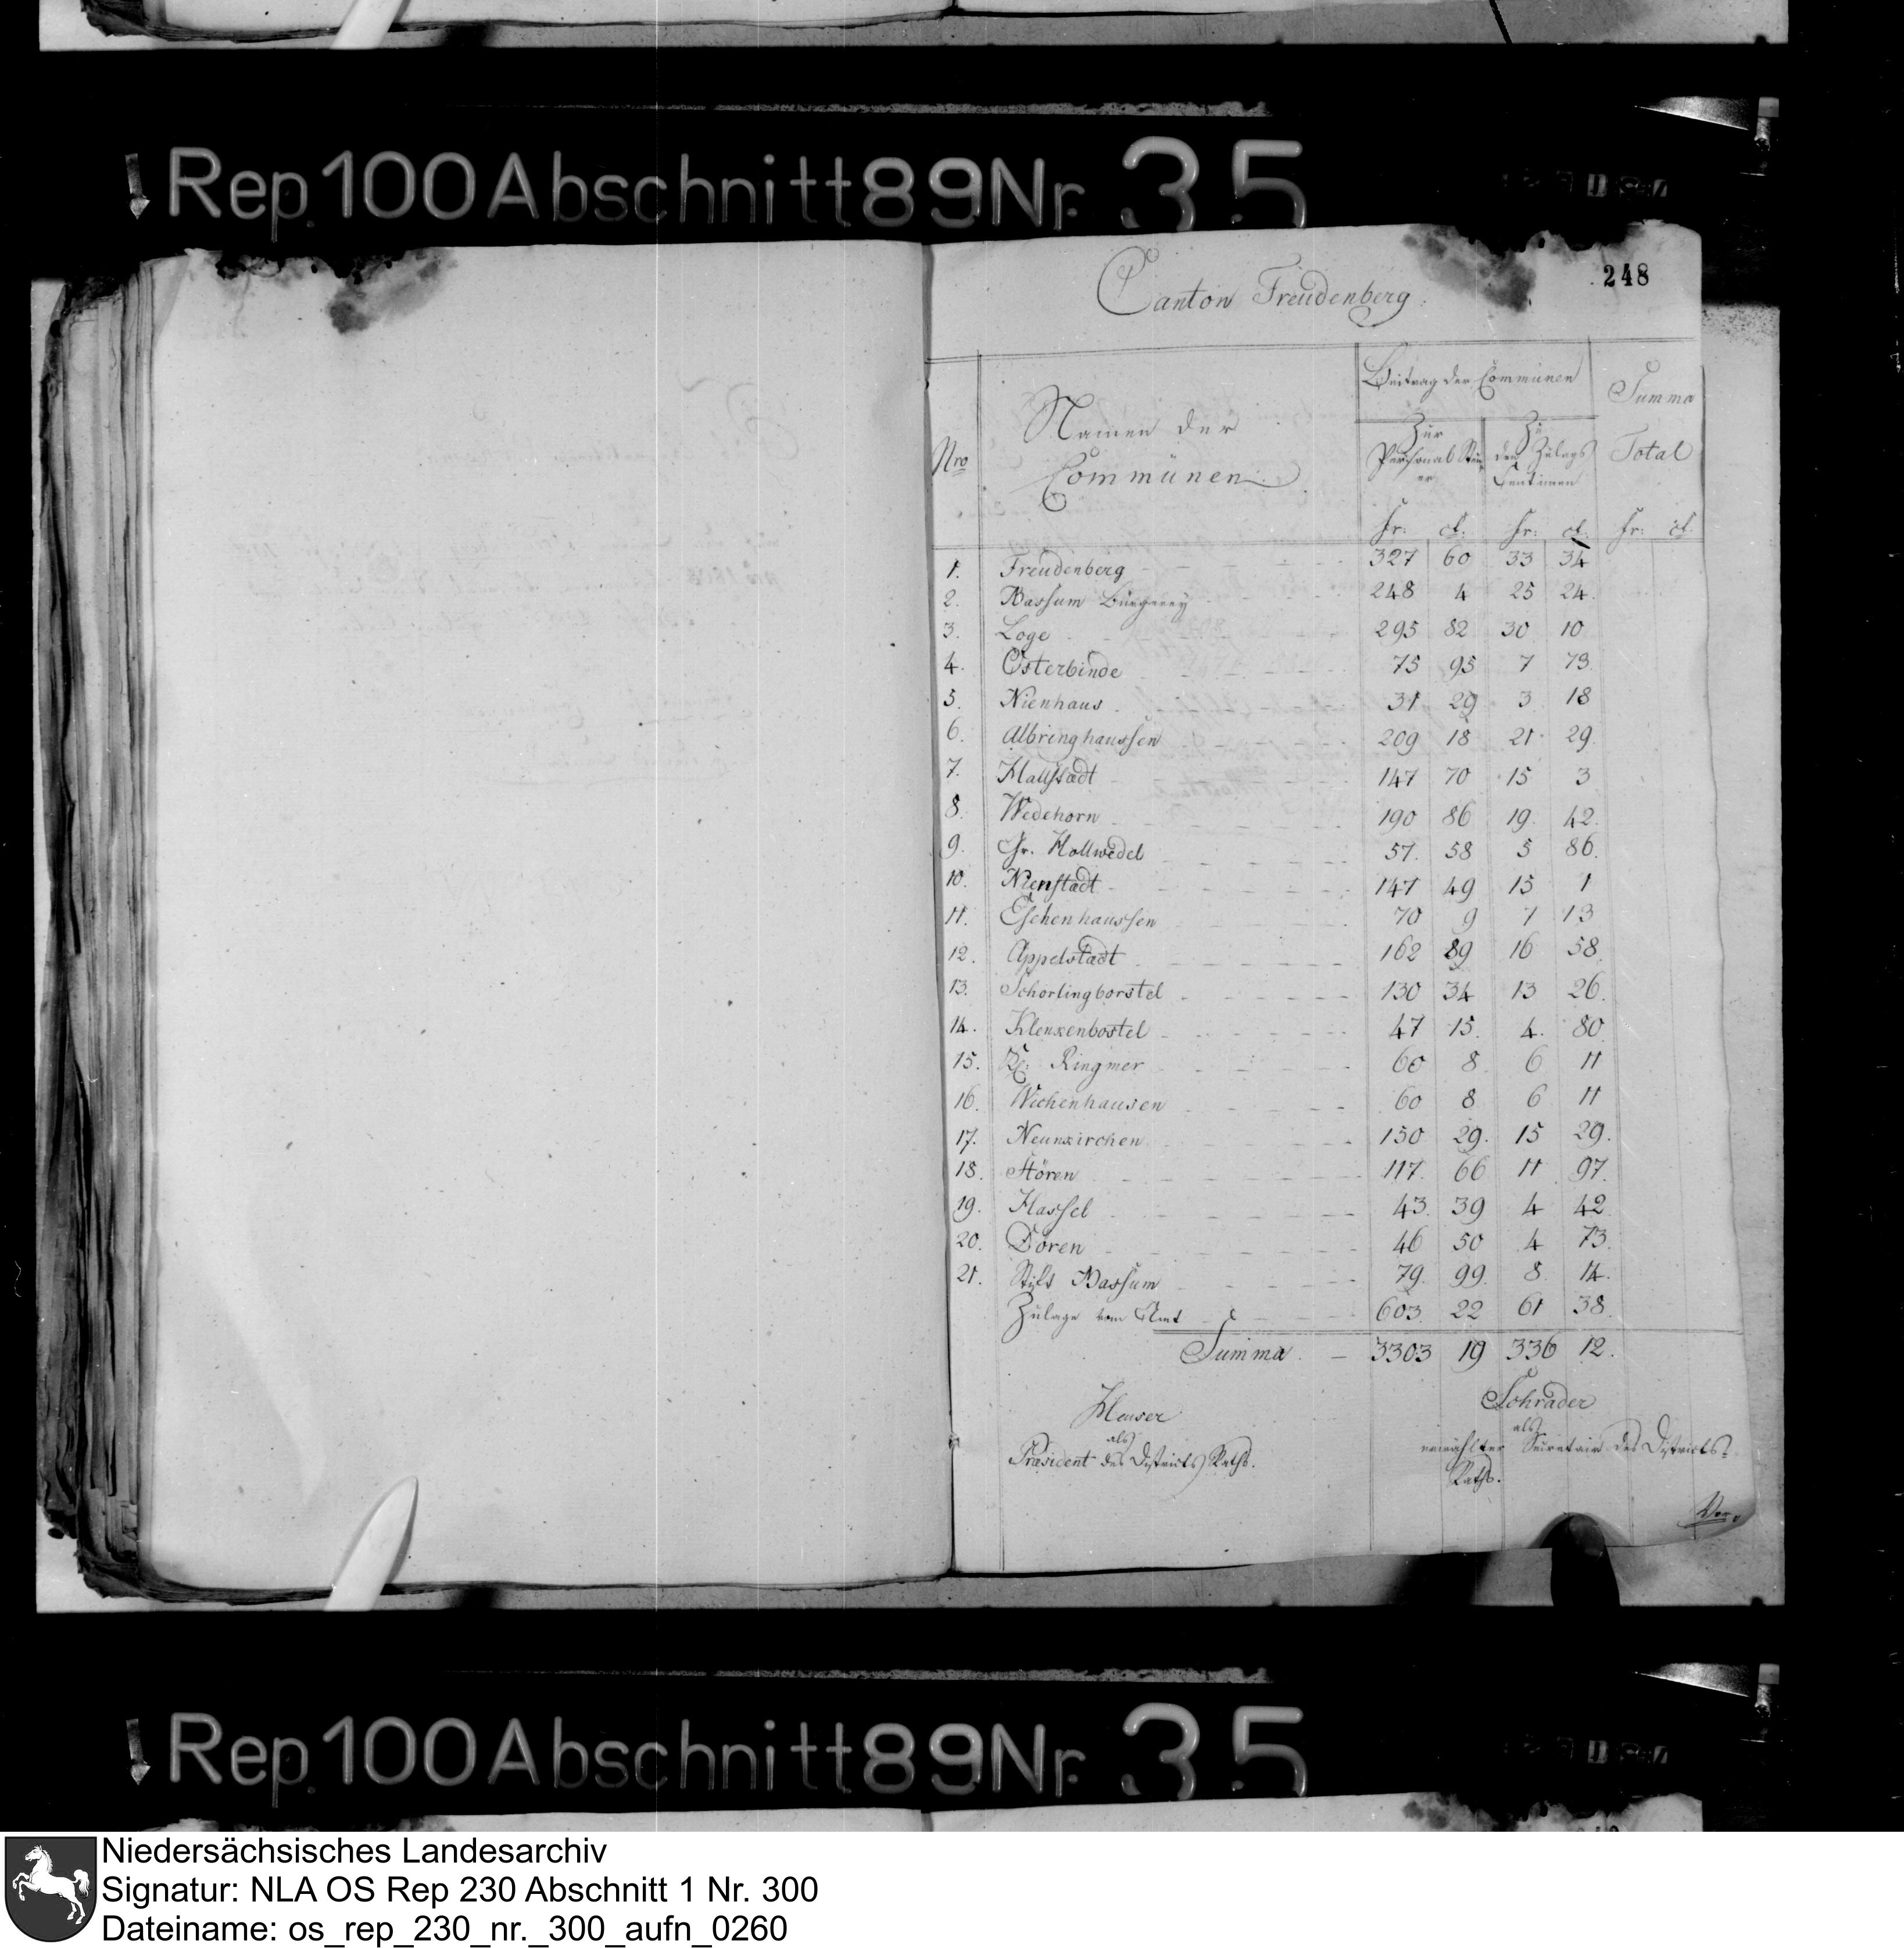 Rep. 100 Abschnitt 89 Nr. 35
248
Canton Freudenberg.
Nro
Namen der
Communen
Beitrag der Communen
Zur
Personal Steu
er
Zu
den Zulags
Centimen
Summa
Total
fr: ct: fr: ct: fr: ct.
1. Freudenberg 327 60 33 34
2. Bassum Bürgerey 248 4 25 24.
3. Loge 295 82 30 10
4. Osterbinde 75 95 7 73.
5. Nienhaus 31 29 3 18
6. Albringhaussen 209 18 21 29.
7. Hallstadt 147 70 15 3
8. Wedehorn 190 86 19. 42.
9. Gr. Hollwedel 57. 58 5 86.
10. Nienstadt 147 49 15 1
11. Eschenhaussen 70 9 7 13
12. Appelstadt 162 89 16 58.
13. Schorlingborstel 130 34 13 26.
14. Klenkenbostel 47 15. 4. 80
15. Kl: Ringmer 60 8 6 11
16. Wichenhausen 60 8 6 11
17. Neunkirchen 150 29. 15 29.
18. Stören 117. 66 11 97.
19. Hassel 43. 39 4 42
20. Dören 46 50 4 73.
21. Stift Bassum 79. 99. 8. 14.
Zulage vom Amt 603. 22 61 38
Summa. 3303 19 336 12.
Heuser
als
Præsident des Districts Raths.
Schrader
als
erwählter Secretair des Districts-
Raths.
Rep. 100 Abschnitt 89 Nr. 35
Niedersächsisches Landesarchiv
Signatur: NLA OS Rep 230 Abschnitt 1 Nr. 300
Dateiname: os_rep_230_nr._300_aufn_0260